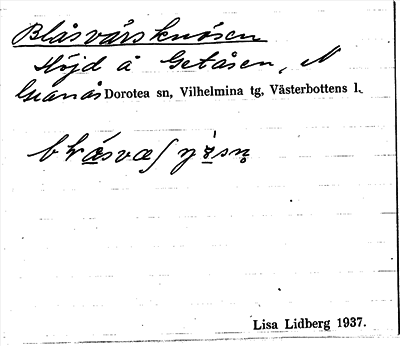 Blåsvårsknösen
Höjd å Getåsen, N
Granås Dorotea sn, Vilhelmina tg, Västerbottens l.
Lisa Lidberg 1937.